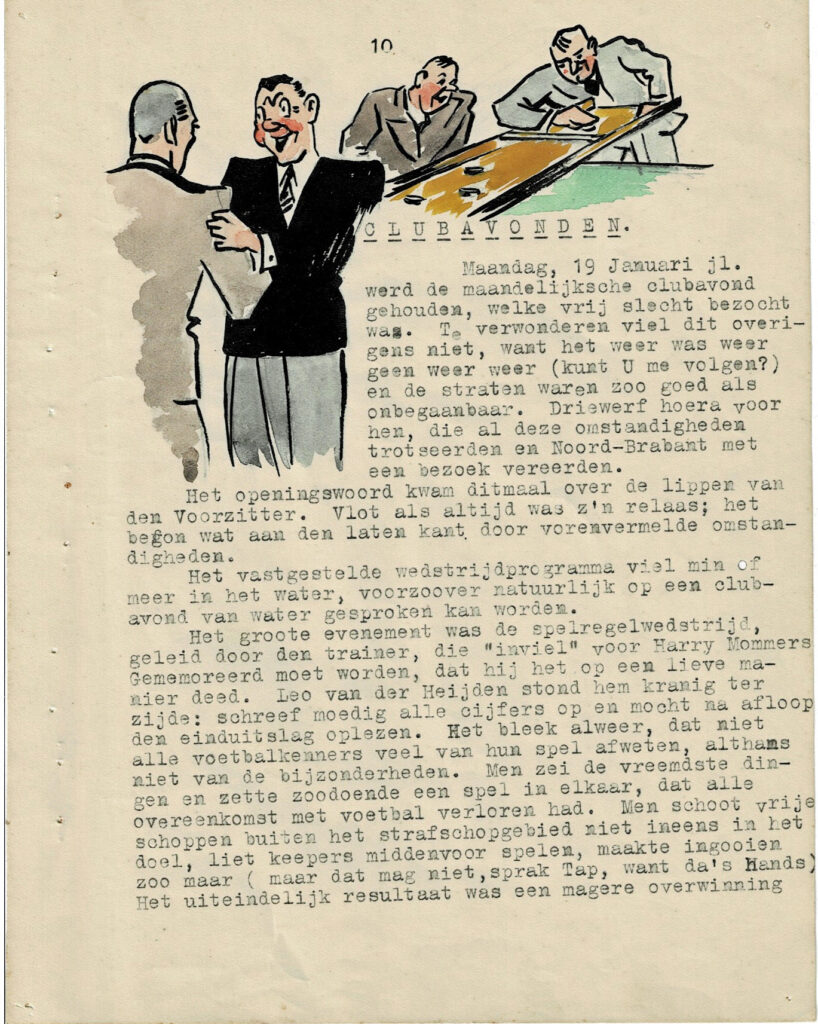 10
CLUBAVONDEN.
Maandag, 19 Januari jl.
werd de maandelijksche clubavond
gehouden, welke vrij slecht bezocht
was. Te verwonderen viel dit overi-
gens niet, want het weer was weer
geen weer weer (kunt U me volgen?)
en de straten waren zoo goed als
onbegaanbaar. Driewerf hoera voor
hen, die al deze omstandigheden
trotseerden en Noord-Brabant met
een bezoek vereerden.
Het openingswoord kwam ditmaal over de lippen van
den Voorzitter. Vlot als altijd was z'n relaas; het
begon wat aan den laten kant door vorenvermelde omstan-
digheden.
Het vastgestelde wedstrijdprogramma viel min of
meer in het water, voorzoover natuurlijk op een club-
avond van water gesproken kan worden.
Het groote evenement was de spelregelwedstrijd,
geleid door den trainer, die "inviel" voor Harry Mommers
Gememoreerd moet worden, dat hij het op een lieve ma-
nier deed. Leo van der Heijden stond hem kranig ter
zijde: schreef moedig alle cijfers op en mocht na afloop
den einduitslag oplezen. Het bleek alweer, dat niet
alle voetbalkenners veel van hun spel afweten, althans
niet van de bijzonderheden. Men zei de vreemdste din-
gen en zette zoodoende een spel in elkaar, dat alle
overeenkomst met voetbal verloren had. Men schoot vrije
schoppen buiten het strafschopgebied niet ineens in het
doel, liet keepers middenvoor spelen, maakte ingooien
zoo maar ( maar dat mag niet,sprak Tap, want da's Hands)
Het uiteindelijk resultaat was een magere overwinning